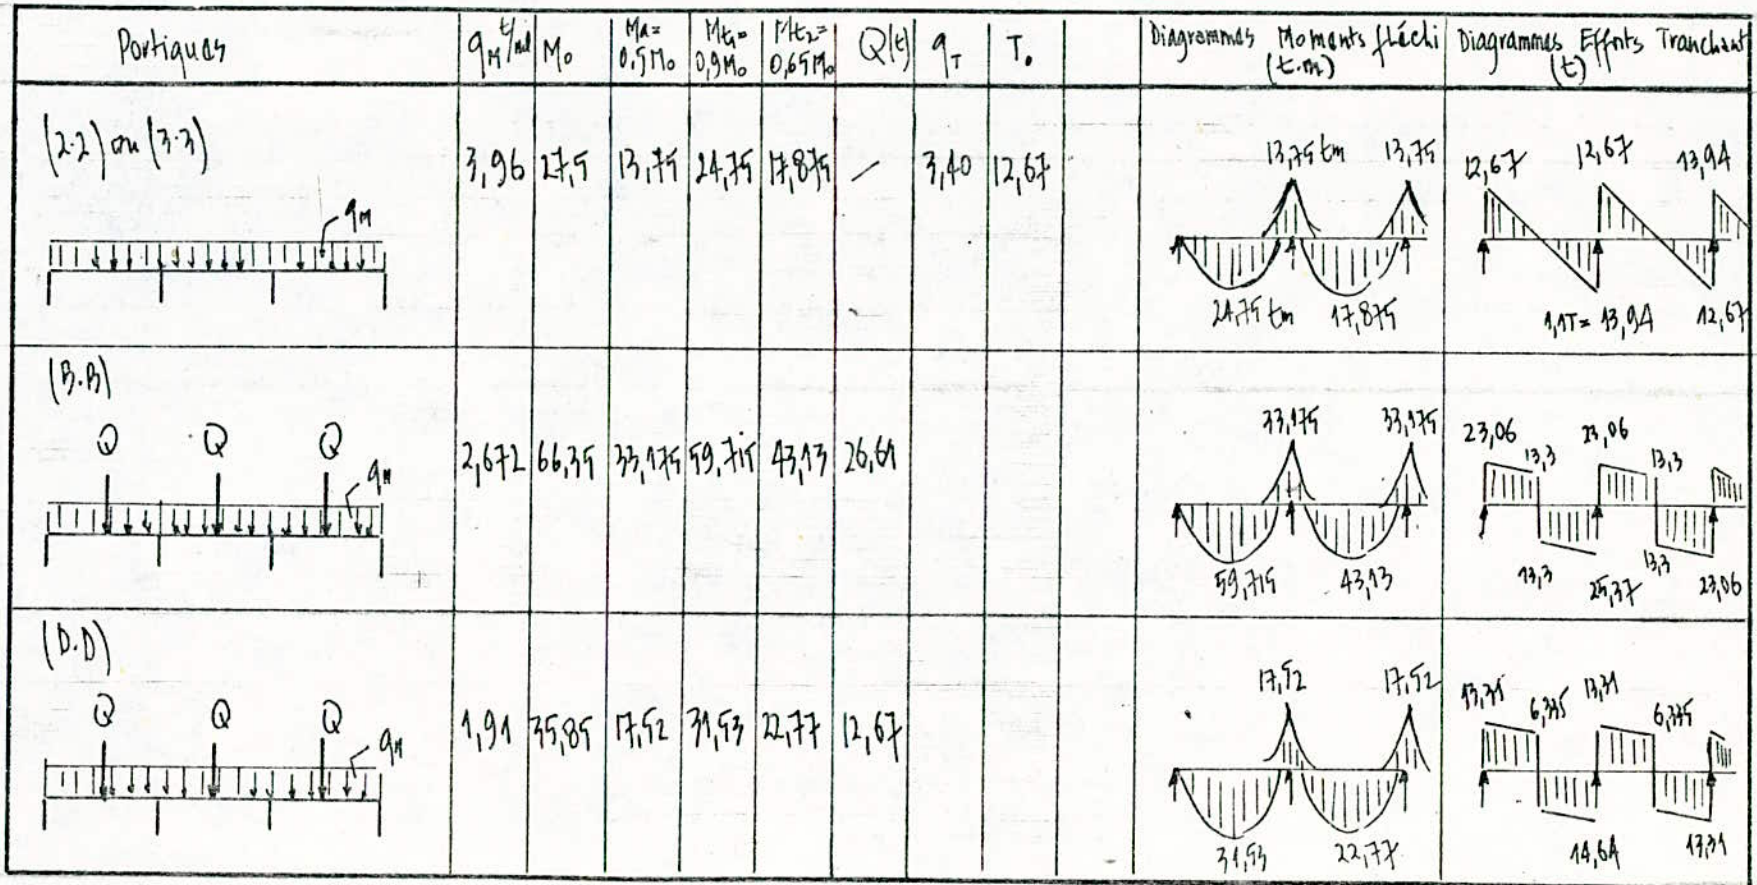 Portiques
q_M t/ml
M₀
Ma=
0,5M₀
Mt₁=
0,9M₀
Mt₂=
0,65M₀
Q(t)
q_T
T₀
Diagrammes Moments fléchi
(t.m)
Diagrammes Efforts Tranchant
(t)
(2-2) ou (3-3)
q_M
3,96 27,5 13,75 24,75 17,875 — 3,40 12,67
13,75 tm 13,75
24,75 tm 17,875
12,67 12,67 13,94
1,1T = 13,94 12,67
(B.B)
Q Q Q
q_M
2,672 66,35 33,175 59,715 43,13 26,61
33,175 33,175
59,715 43,13
23,06 13,3 23,06 13,3
13,3 25,37 13,3 23,06
(D.D)
Q Q Q
q_M
1,91 35,85 17,52 31,53 22,77 12,67
17,52 17,52
31,53 22,77
13,31 6,335 13,31 6,335
14,64 13,31